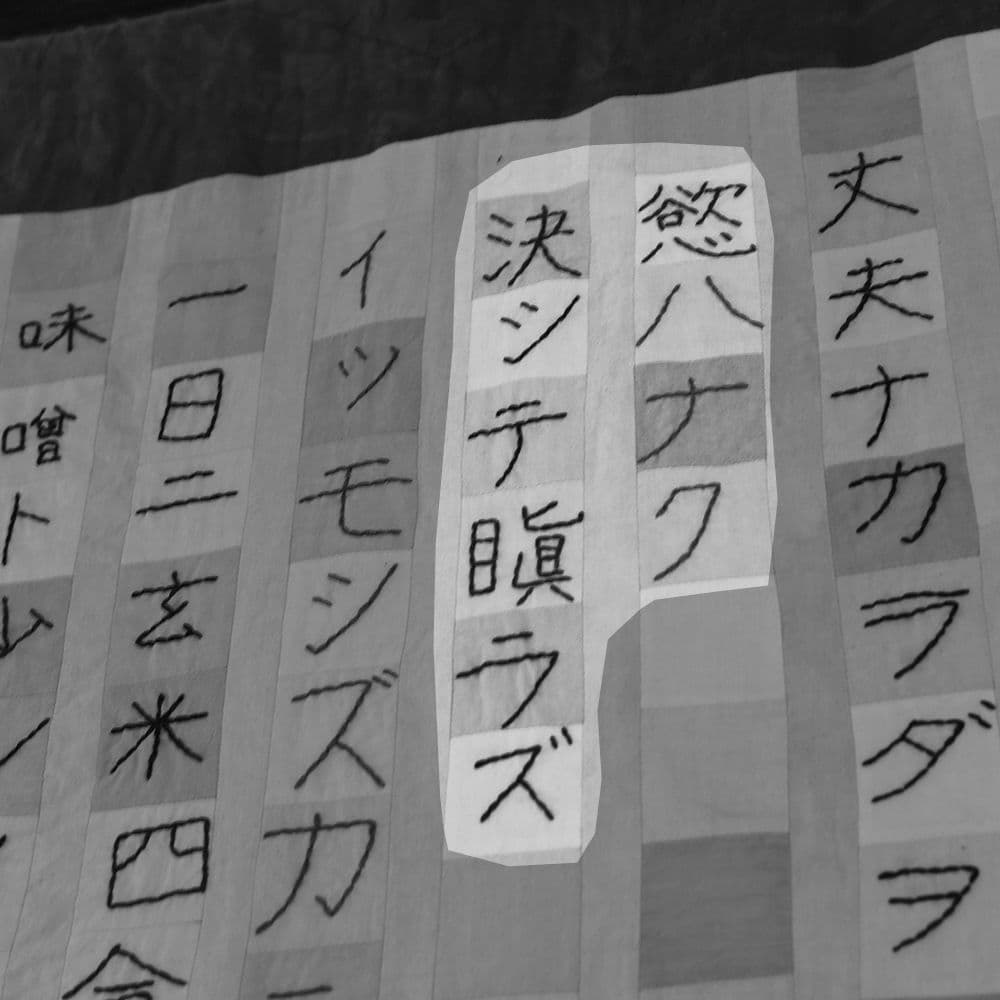 丈夫ナカラダヲ
慾ハナク
決シテ瞋ラズ
イツモシズカ
一日ニ玄米四合
味噌ト少シ